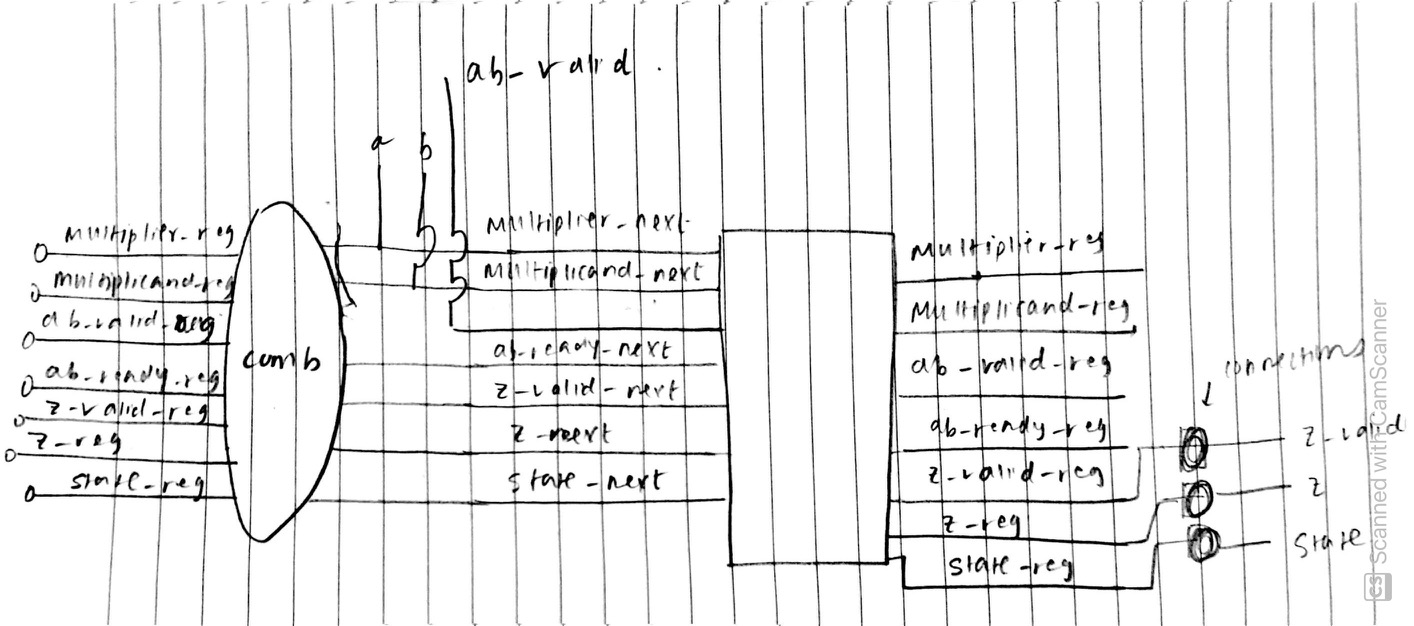 ab-valid
a
b
multiplier-reg
multiplicand-reg
ab-valid-reg
ab-ready-reg
z-valid-reg
z-reg
state-reg
comb
multiplier-next
multiplicand-next
ab-ready-next
z-valid-next
z-next
state-next
multiplier-reg
multiplicand-reg
ab-valid-reg
ab-ready-reg
z-valid-reg
z-reg
state-reg
connections
z-valid
z
state
CS Scanned with CamScanner